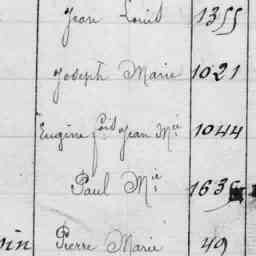 Jean Louis 1355
Joseph Marie 1021
Eugène fois Jean Mie 1044
Paul Mie 1635
Pierre Marie 49